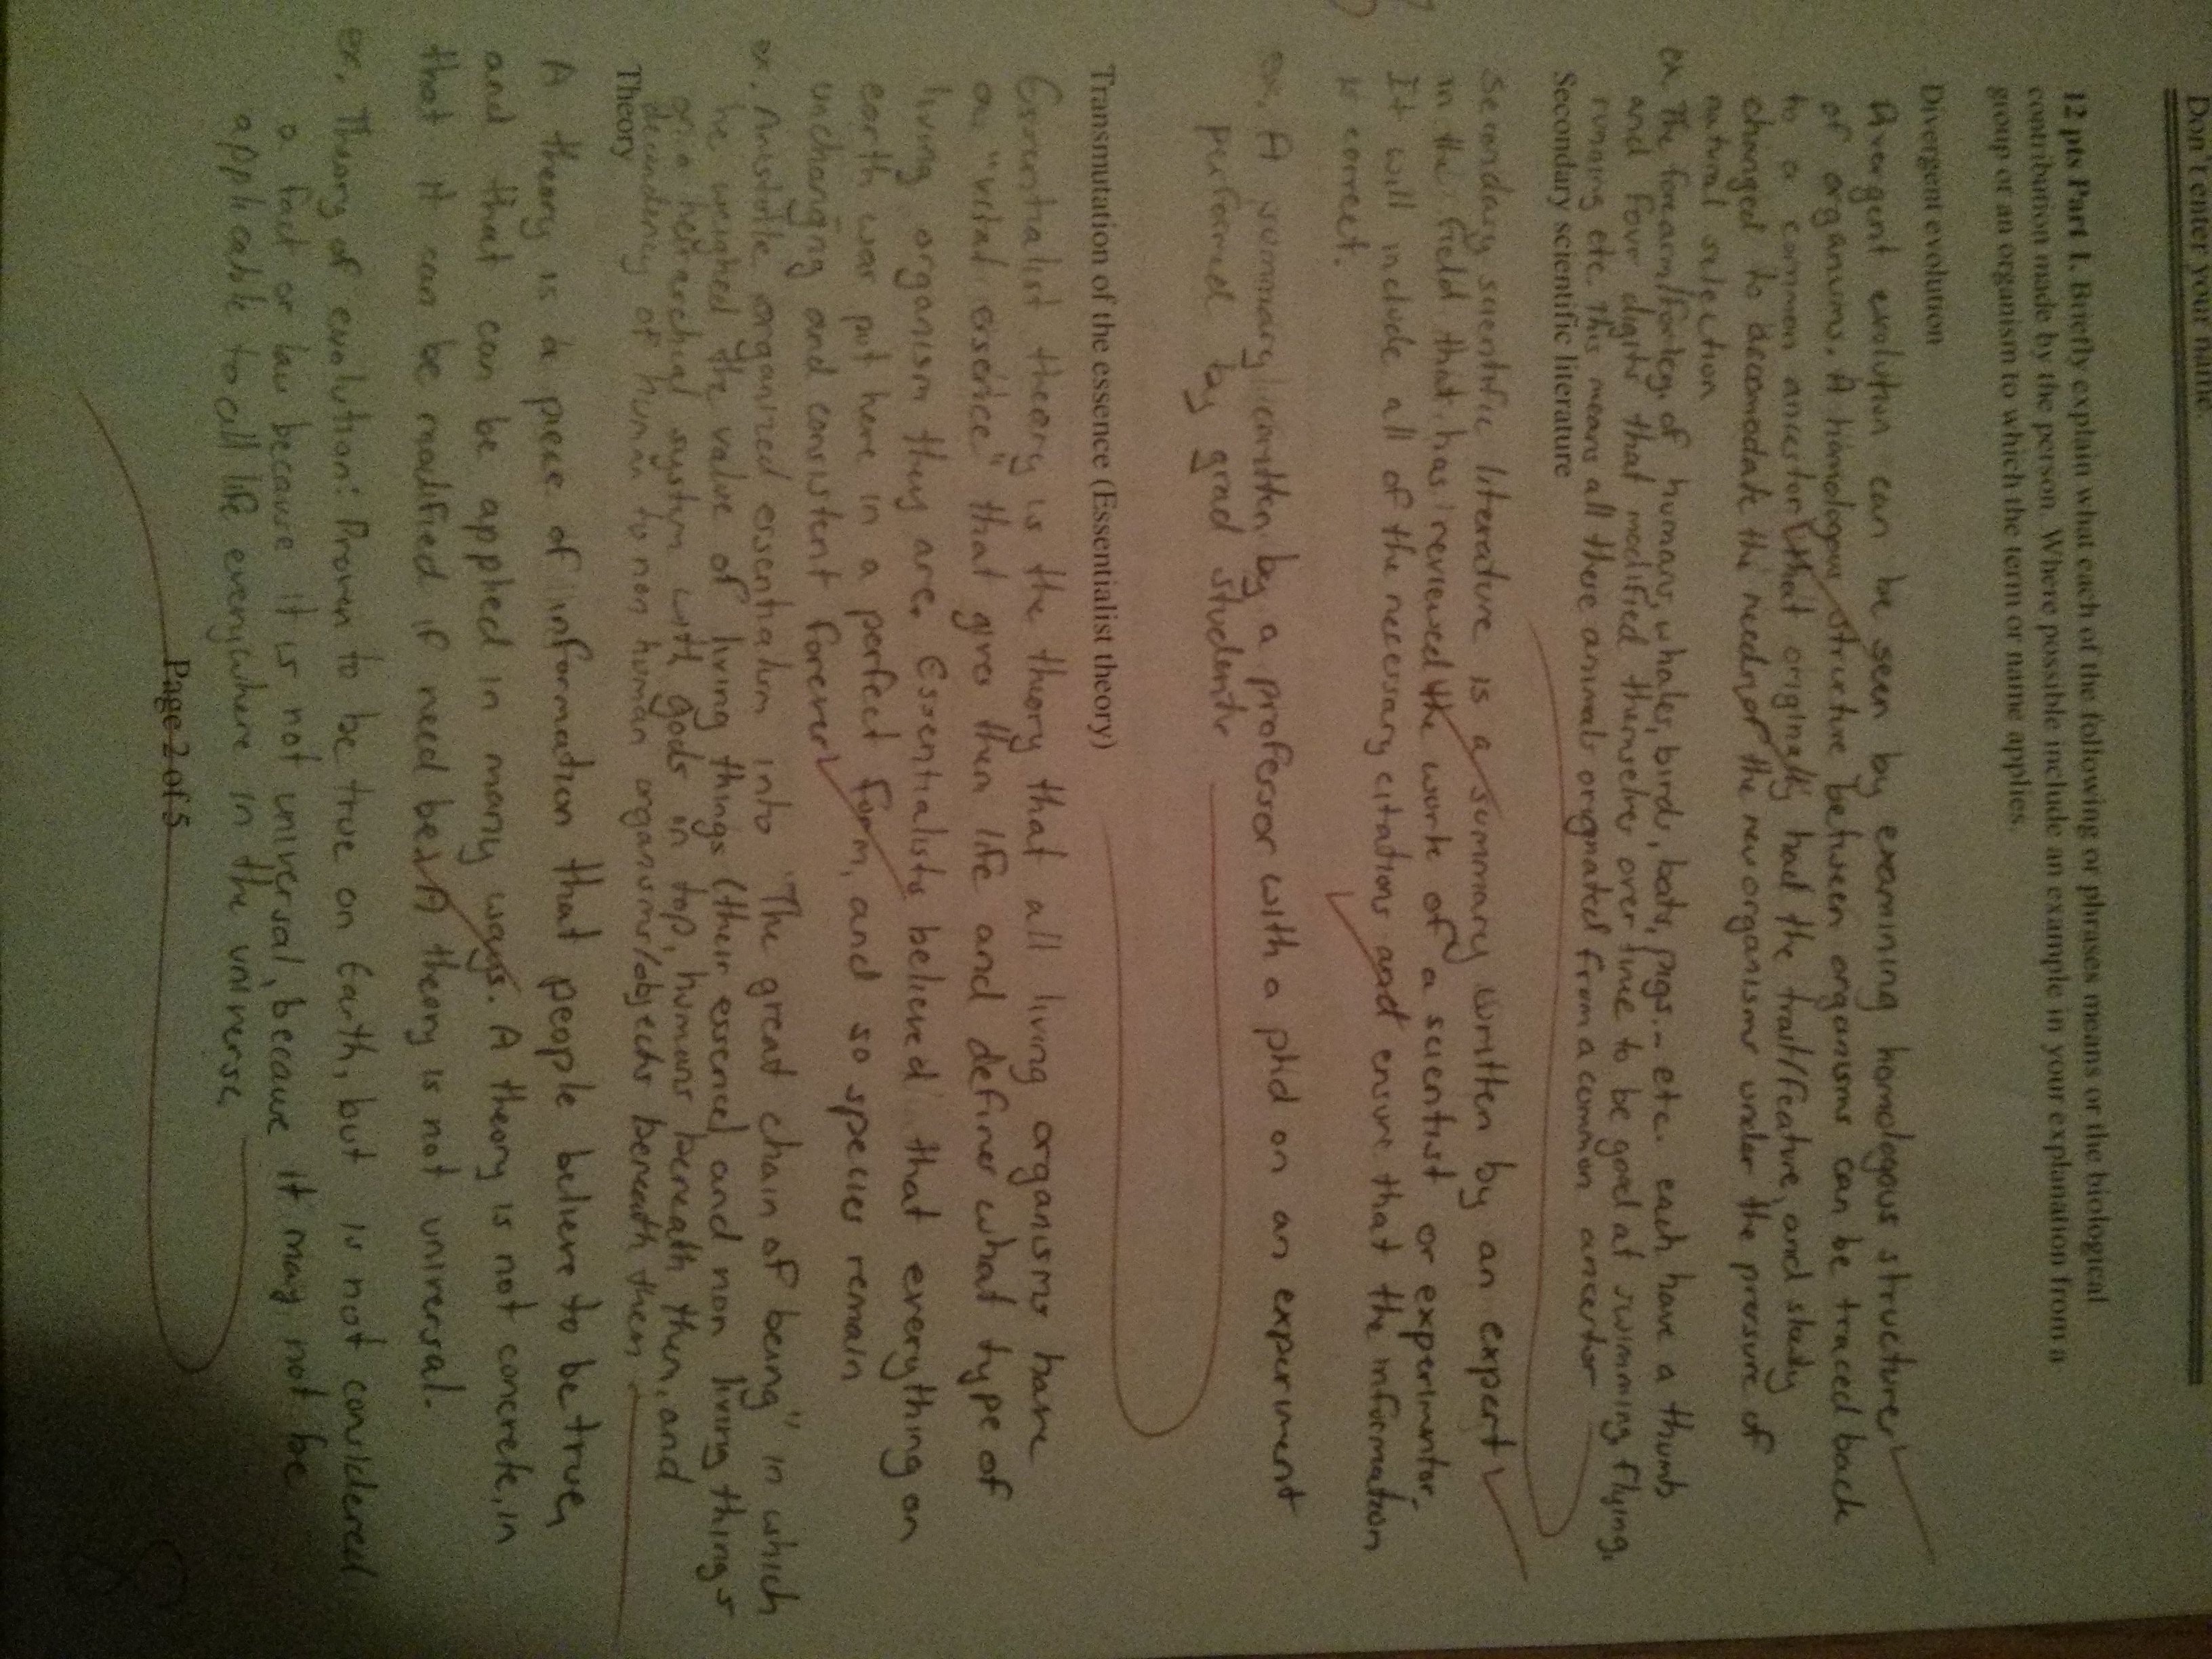 Don't enter your name
12 pts Part 1. Briefly explain what each of the following or phrases means or the biological
contribution made by the person. Where possible include an example in your explanation from a
group or an organism to which the term or name applies.
Divergent evolution
Divergent evolution can be seen by examining homologous structures
of organisms. A homologous structure between organisms can be traced back
to a common ancestor that originally had the trait/feature, and slowly
changed to accomodate the needs of the new organisms under the pressure of
natural selection
ex. The forearm/foreleg of humans, whales, birds, bats, pigs... etc. each have a thumb
and four digits that modified themselves over time to be good at swimming, flying,
running etc. This means all these animals orginated from a common ancestor
Secondary scientific literature
Secondary scientific literature is a summary written by an expert
in the field that has reviewed the work of a scientist or experimentor.
It will include all of the necessary citations and ensure that the information
is correct.
ex. A summary written by a professor with a phd on an experiment
performed by grad students
Transmutation of the essence (Essentialist theory)
Essentialist theory is the theory that all living organisms have
a "vital essence" that gives them life and defines what type of
living organism they are. Essentialists believed that everything on
earth was put here in a perfect form, and so species remain
unchanging and consistent forever
ex. Aristotle organized essentialism into "The great chain of being" in which
he weighted the value of living things (their essence) and non living things
in a heirarchical system with gods on top, humans beneath them, and
decendency of human to non human organisms/objects beneath them
Theory
A theory is a piece of information that people believe to be true,
and that can be applied in many ways. A theory is not concrete, in
that it can be modified if need be. A theory is not universal.
ex. Theory of evolution: Proven to be true on Earth, but is not considered
a fact or law because it is not universal, because it may not be
applicable to all life everywhere in the universe.
Page 2 of 5